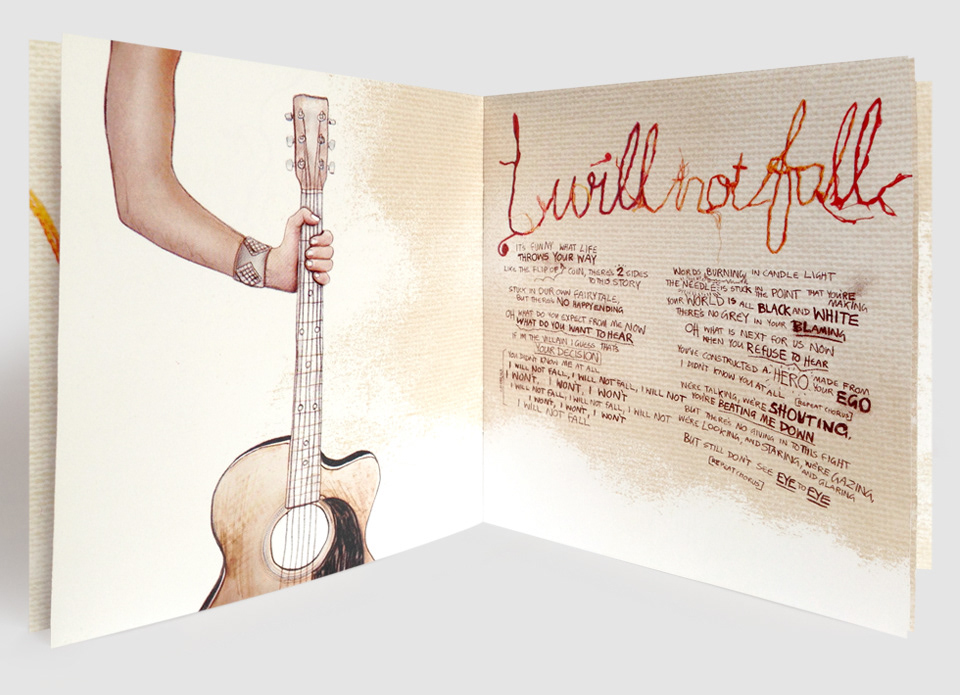 I will not fall
ITS FUNNY WHAT LIFE
THROWS YOUR WAY
LIKE THE FLIP OF A COIN, THERE'S 2 SIDES
TO THIS STORY
STUCK IN OUR OWN FAIRYTALE,
BUT THERES NO HAPPY ENDING
OH WHAT DO YOU EXPECT FROM ME NOW
WHAT DO YOU WANT TO HEAR
IF IM THE VILLAIN I GUESS THATS
YOUR DECISION
YOU DIDN'T KNOW ME AT ALL
I WILL NOT FALL, I WILL NOT FALL, I WILL NOT
I WONT, I WON'T, I WON'T
I WILL NOT FALL, I WILL NOT FALL, I WILL NOT
I WON'T, I WON'T, I WON'T
I WILL NOT FALL
WORDS BURNING IN CANDLE LIGHT
THE NEEDLE IS STUCK IN THE POINT THAT YOU'RE
MAKING
YOUR WORLD IS ALL BLACK AND WHITE
THERE'S NO GREY IN YOUR BLAMING
OH WHAT IS NEXT FOR US NOW
WHEN YOU REFUSE TO HEAR
YOU'VE CONSTRUCTED A HERO MADE FROM
YOUR EGO
I DIDN'T KNOW YOU AT ALL [REPEAT CHORUS]
WERE TALKING, WE'RE SHOUTING,
YOU'RE BEATING ME DOWN
BUT THERE'S NO GIVING IN TO THIS FIGHT
WERE LOOKING, AND STARING, WE'RE GAZING,
AND GLARING
BUT STILL DON'T SEE EYE TO EYE
[REPEAT CHORUS]